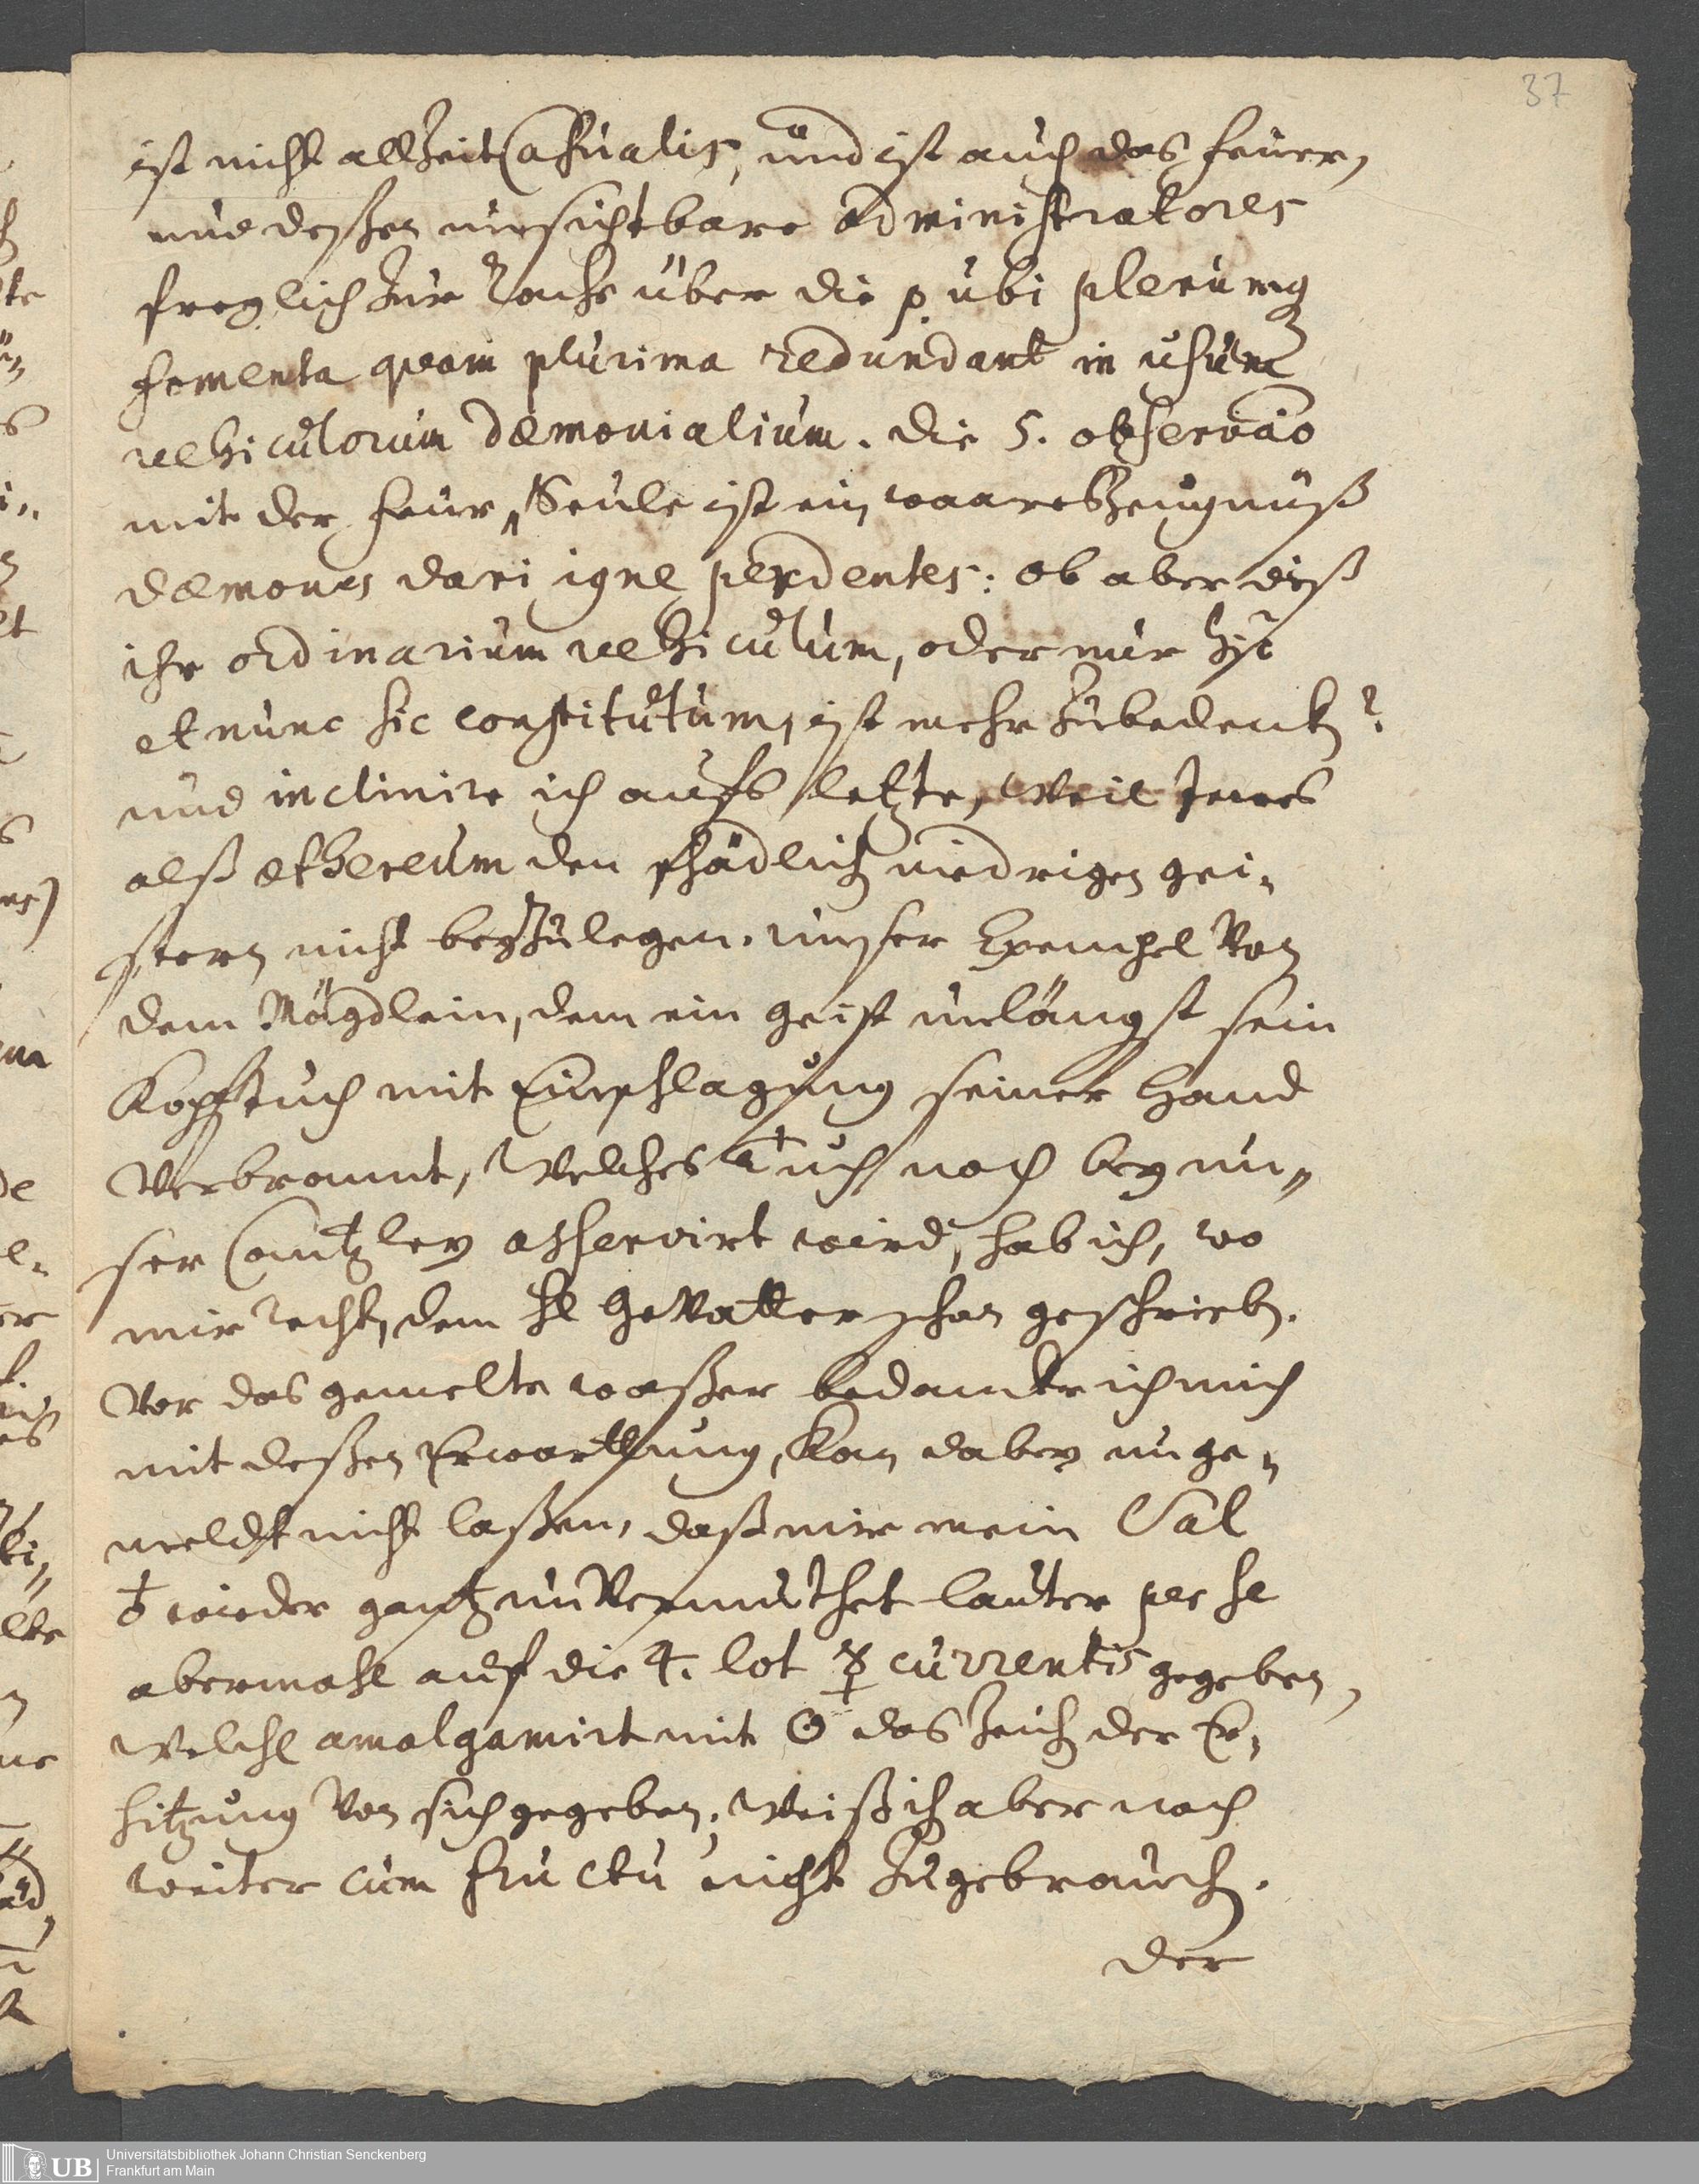 37
ist nicht allzeit casualis, und ist auch das feuer,
und deßen unsichtbare administratores
freylich zur rache über die p. ubi plerumq
fomenta quam plurima redundant in usum
vehiculorum dæmonialium. die 5. observaõ
mit der feur Seule ist ein waares Zeugnüß
dæmones dari igne perdentes: ob aber diß
ihr ordinarium vehiculum, oder nur hic
et nunc sic constitutum, ist mehr zubedenck?
und inclinire ich aufs letzte, weil Jenes
alß æthereum den schädlich niedrigen gei-
stern nicht beyzulegen. unser Exempel von
dem Mägdlein, dem ein geist unlängst sein
Kopftuch mit Einschlagung seiner Hand
verbrannt, welches Tuch noch bey un-
ser Cantzley asservirt wird, hab ich, wo
mir recht, dem H Gevatter schon geschrieb.
Vor das gemelte waßer bedancke ich mich
mit deßen Erwarttung, Kan dabey unge-
meldt nicht laßen, daß mir mein Sal
♁ wieder gantz unvermuthet lauter per se
abermahl auf die 4. lot ☿ currentis gegeben,
welche amalgamirt mit ☉ das Zeich der Er-
hitzung von sich gegeben; weiß ich aber noch
weiter cum fructu nicht zugebrauch.
der
Universitätsbibliothek Johann Christian Senckenberg
UB Frankfurt am Main